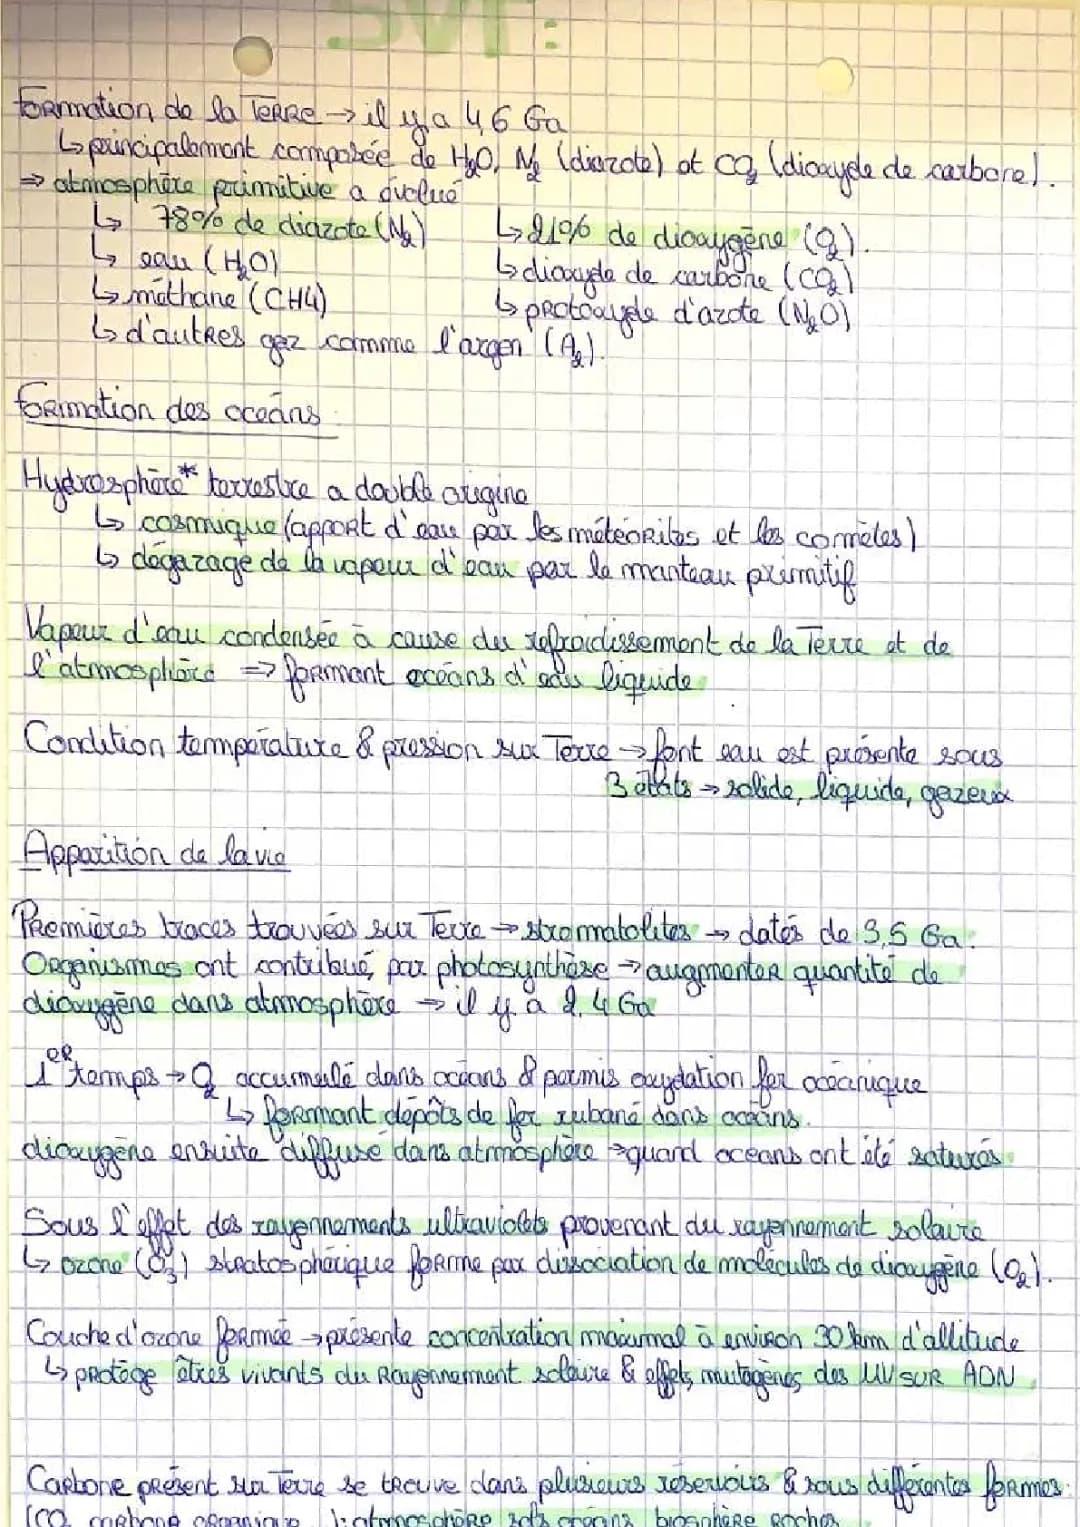 SVT :
Formation de la Terre → il y a 4,6 Ga
↳ principalement composée de H₂O, N₂ (diazote) et CO₂ (dioxyde de carbone).
⇒ atmosphère primitive a évolué
↳ 78% de diazote (N₂) ↳ 21% de dioxygène (O₂).
↳ eau (H₂O) ↳ dioxyde de carbone (CO₂)
↳ méthane (CH4) ↳ protoxyde d'azote (N₂O)
↳ d'autres gaz comme l'argon (A₂).
Formation des océans
Hydrosphère* terrestre a double origine
↳ cosmique (apport d'eau par les météorites et les comètes)
↳ dégazage de la vapeur d'eau par le manteau primitif
Vapeur d'eau condensée à cause du refroidissement de la Terre et de
l'atmosphère ⇒ formant océans d'eau liquide
Condition température & pression sur Terre → font eau est présente sous
3 états → solide, liquide, gazeux
Apparition de la vie
Premières traces trouvées sur Terre → stromatolites → datés de 3,5 Ga.
Organismes ont contribué, par photosynthèse → augmenter quantité de
dioxygène dans atmosphère → il y a 2,4 Ga
1er temps → O₂ accumulé dans océans & permis oxydation fer océanique
↳ formant dépôts de fer rubané dans océans.
dioxygène ensuite diffusé dans atmosphère → quand océans ont été saturés
Sous l'effet des rayonnements ultraviolets provenant du rayonnement solaire
↳ ozone (O₃) stratosphérique forme par dissociation de molécules de dioxygène (O₂).
Couche d'ozone formée → présente concentration maximal à environ 30 km d'altitude
↳ protège êtres vivants du Rayonnement solaire & effets mutagènes des UV sur ADN
Carbone présent sur Terre se trouve dans plusieurs réservoirs & sous différentes formes:
(CO₂ carbone organique ): atmosphère, sols, océans, biosphère, Roches